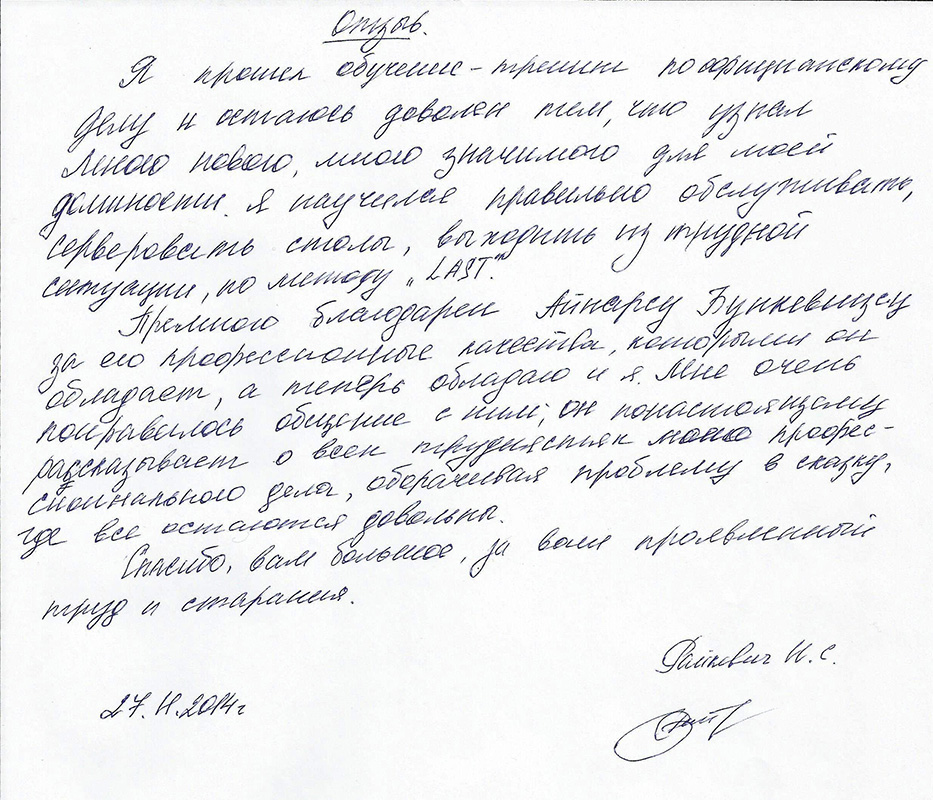 Отзыв.
Я прошел обучение-тренинг по официанскому
делу и остаюсь доволен тем, что узнал
много нового, много значимого для моей
должности. Я научился правильно обслуживать,
серверовать столы, выходить из трудной
ситуации, по методу „LAST".
Премного благодарен Айнарсу Бункевицсу
за его профессионные качества, которыми он
обладает, а теперь обладаю и я. Мне очень
понравилось общение с ним, он понастоящему
рассказывает о всех трудностях моего профес-
сиоинального дела, оборачивая проблему в сказку,
где все остаются довольны.
Спасибо, вам большое, за ваш проявленный
труд и старания.
И. С.
27.11.2014г